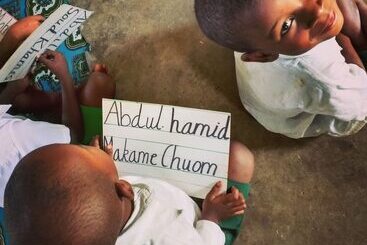 Soud Kha
Abdul hamid
Makame Chuom